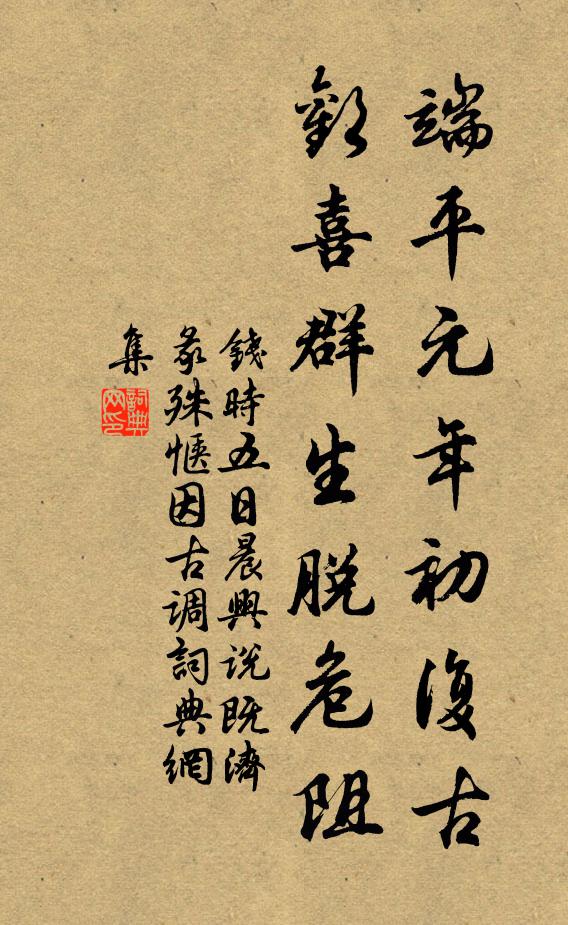 端平元年初復古
歡喜群生脫危阻
錢時五日晨興說既濟
彖殊愜因古調詞典網
集
詞典網印